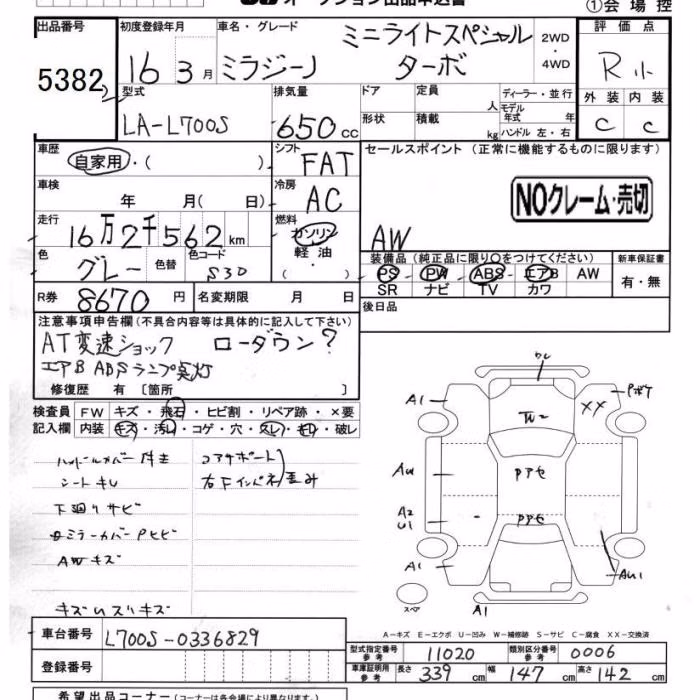 オークション出品申込書
①会場控
出品番号 初度登録年月 車名・グレード 評価点
5382 16 3月 ミラジーノ ミニライトスペシャル ターボ 2WD・4WD R小
型式 排気量 ドア 定員 人 ディーラー・並行 外装 内装
LA-L700S 650cc 形状 積載 kg モデル年式 年 ハンドル 左・右 C C
車歴 自家用・( ) シフト FAT
セールスポイント (正常に機能するものに限ります)
車検 年 月( 日) 冷房 AC
NOクレーム・売切
走行 16万2千562km 燃料 ガソリン 軽油 ( )
AW
色 グレー 色替 色コード S30
装備品(純正品に限り○をつけてください) 新車保証書
PS PW ABS エアB AW 有・無
SR ナビ TV カワ
R券 8670円 名変期限 月 日
後日品
注意事項申告欄(不具合内容等は具体的に記入して下さい)
AT変速ショック ローダウン?
エアB ABSランプ点灯
修復歴 有 [箇所 ]
検査員 FW キズ・飛石・ヒビ割・リペア跡・×要
記入欄 内装 キズ・汚レ・コゲ・穴・スレ・キレ・破レ
シートキレ
下廻りサビ
AWキズ
A1 XX
W2
A2
U1
A1 AU1
スペア A1
A-キズ E-エクボ U-凹み W-補修跡 S-サビ C-腐食 XX-交換済
車台番号 L700S-0336829
登録番号
型式指定番号 参考 11020 類別区分番号 参考 0006
車庫証明用 参考 長さ 339 幅 147 高さ 142 cm
希望出品コーナー(コーナーは各会場により異なります)